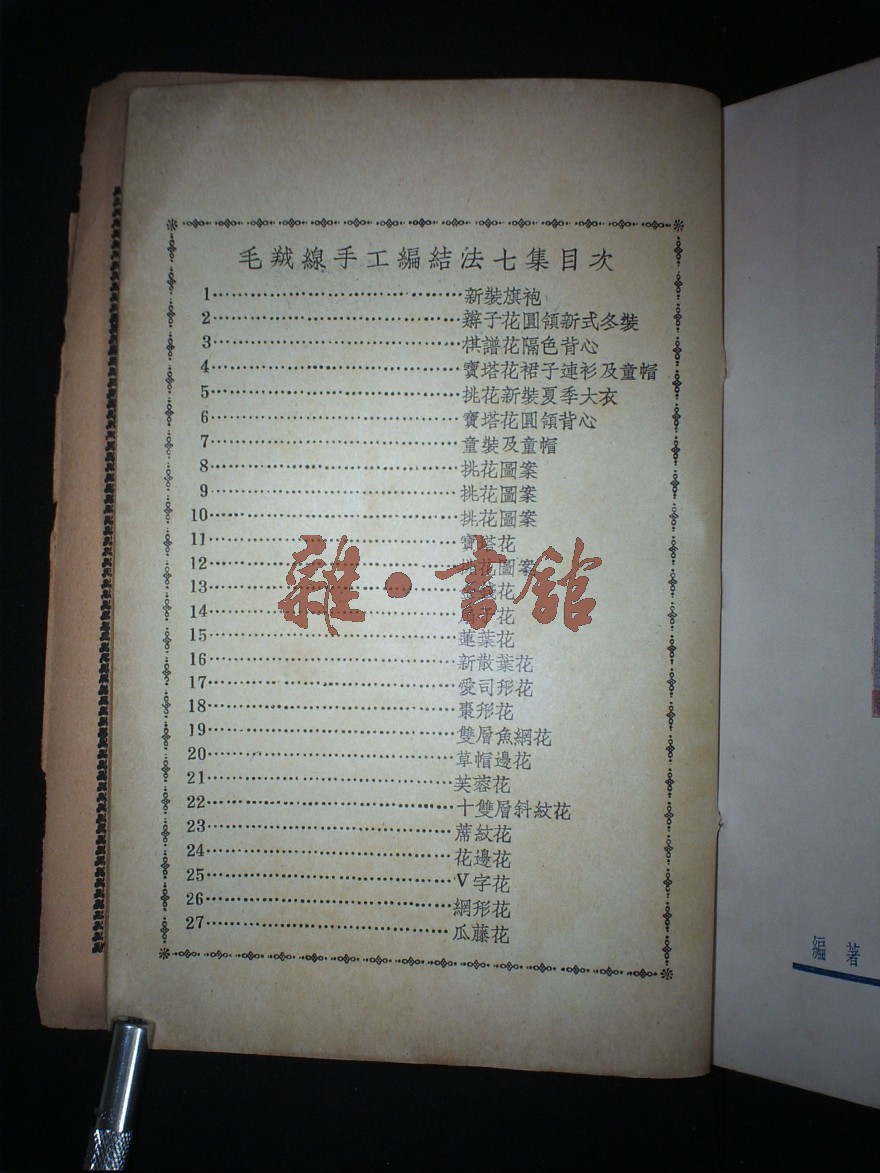 毛羢線手工編結法七集目次
1 新裝旗袍
2 辮子花圓領新式冬裝
3 棋譜花隔色背心
4 寶塔花裙子連衫及童帽
5 挑花新裝夏季大衣
6 寶塔花圓領背心
7 童裝及童帽
8 挑花圖案
9 挑花圖案
10 挑花圖案
11 寶塔花
12 挑花圖案
13 花
14 扇子花
15 蓮葉花
16 新散葉花
17 愛司形花
18 棗形花
19 雙層魚網花
20 草帽邊花
21 芙蓉花
22 十雙層斜紋花
23 蓆紋花
24 花邊花
25 V字花
26 網形花
27 瓜藤花
雜·書館
編著